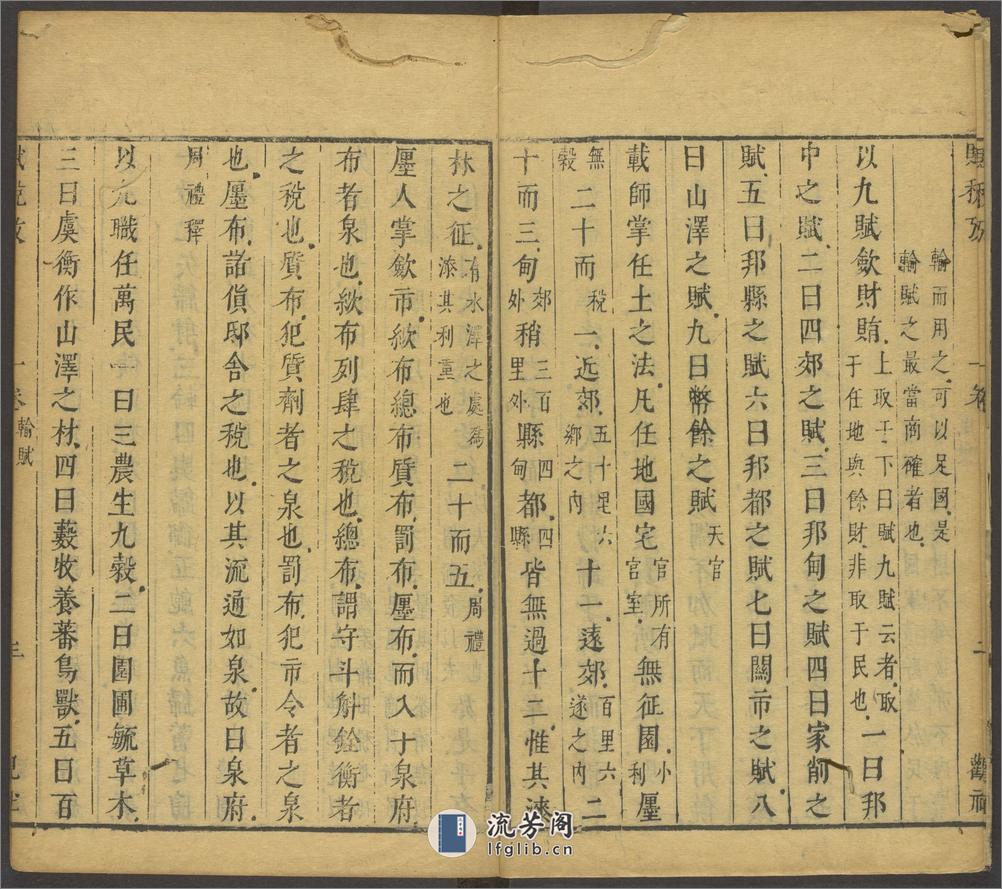 賦稅攷 一卷 二
輸而用之可以足國是
輸賦之最當商確者也
以九賦斂財賄上取于下曰賦九賦云者取于任地與餘財非取于民也一曰邦
中之賦二曰四郊之賦三曰邦甸之賦四曰家削之
賦五曰邦縣之賦六曰邦都之賦七曰關市之賦八
曰山澤之賦九曰幣餘之賦天官
載師掌任土之法凡任地國宅官所有官室無征園小利廛
無穀二十而稅一近郊五十里六鄉之內十一遠郊百里六遂之內二
十而三甸郊外稍三百里外縣四甸都四縣皆無過十二惟其漆
林之征有水澤之處為漆其利重也二十而五周禮
廛人掌斂市絘布總布質布罰布廛布而入于泉府
布者泉也絘布列肆之稅也總布謂守斗斛銓衡者
之稅也質布犯質劑者之泉也罰布犯市令者之泉
也廛布諸貨邸舍之稅也以其流通如泉故曰泉府
周禮釋
以九職任萬民一曰三農生九穀二曰園圃毓草木
三曰虞衡作山澤之材四曰藪牧養蕃鳥獸五曰百
賦稅攷 一卷 輸賦 三
流芳阁
lfglib.cn